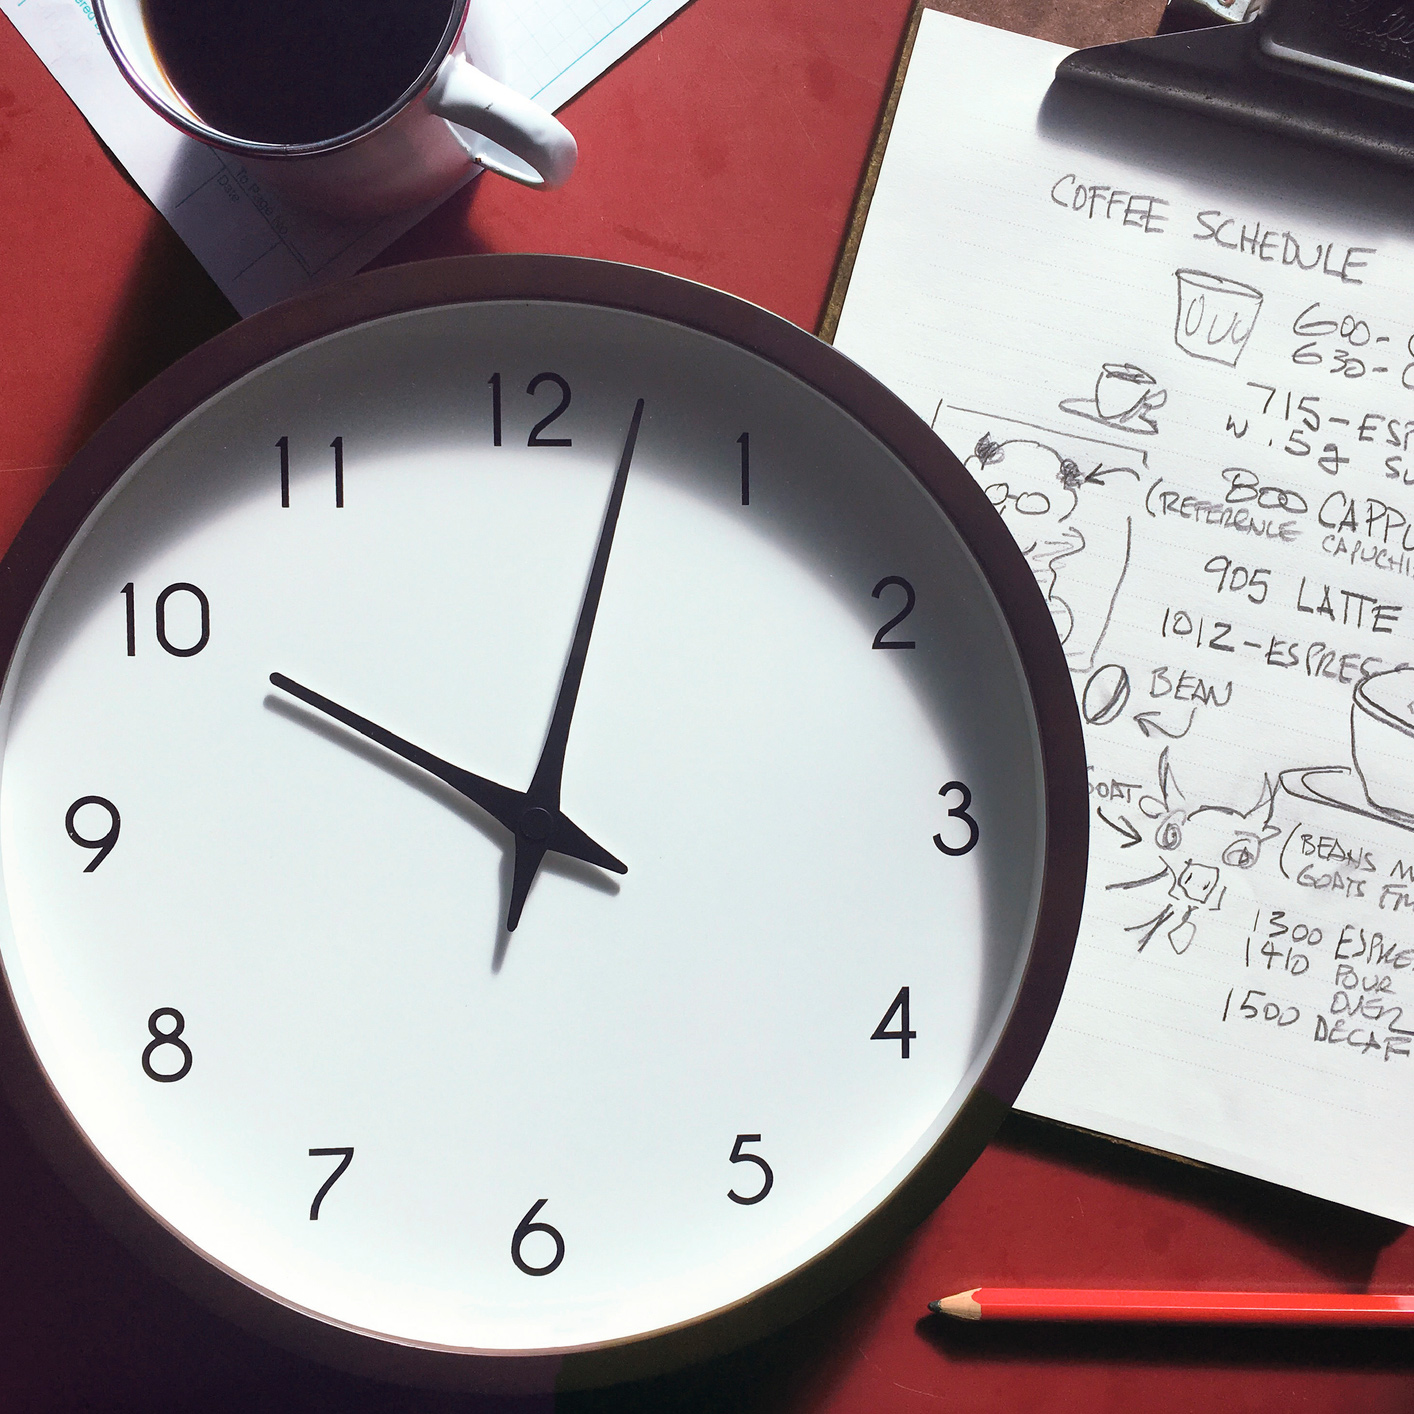 To Page No.
Date
12
1
2
3
4
5
6
7
8
9
10
11
COFFEE SCHEDULE
600-
630-
715-ESP
w .5g SU
800 CAPPU
(REFERENCE
CAPUCHI
905 LATTE
1012-ESPRES
BEAN
GOAT
(BEANS M
GOATS FM
1300 ESPRE
1410 POUR
OVER
1500 DECAF